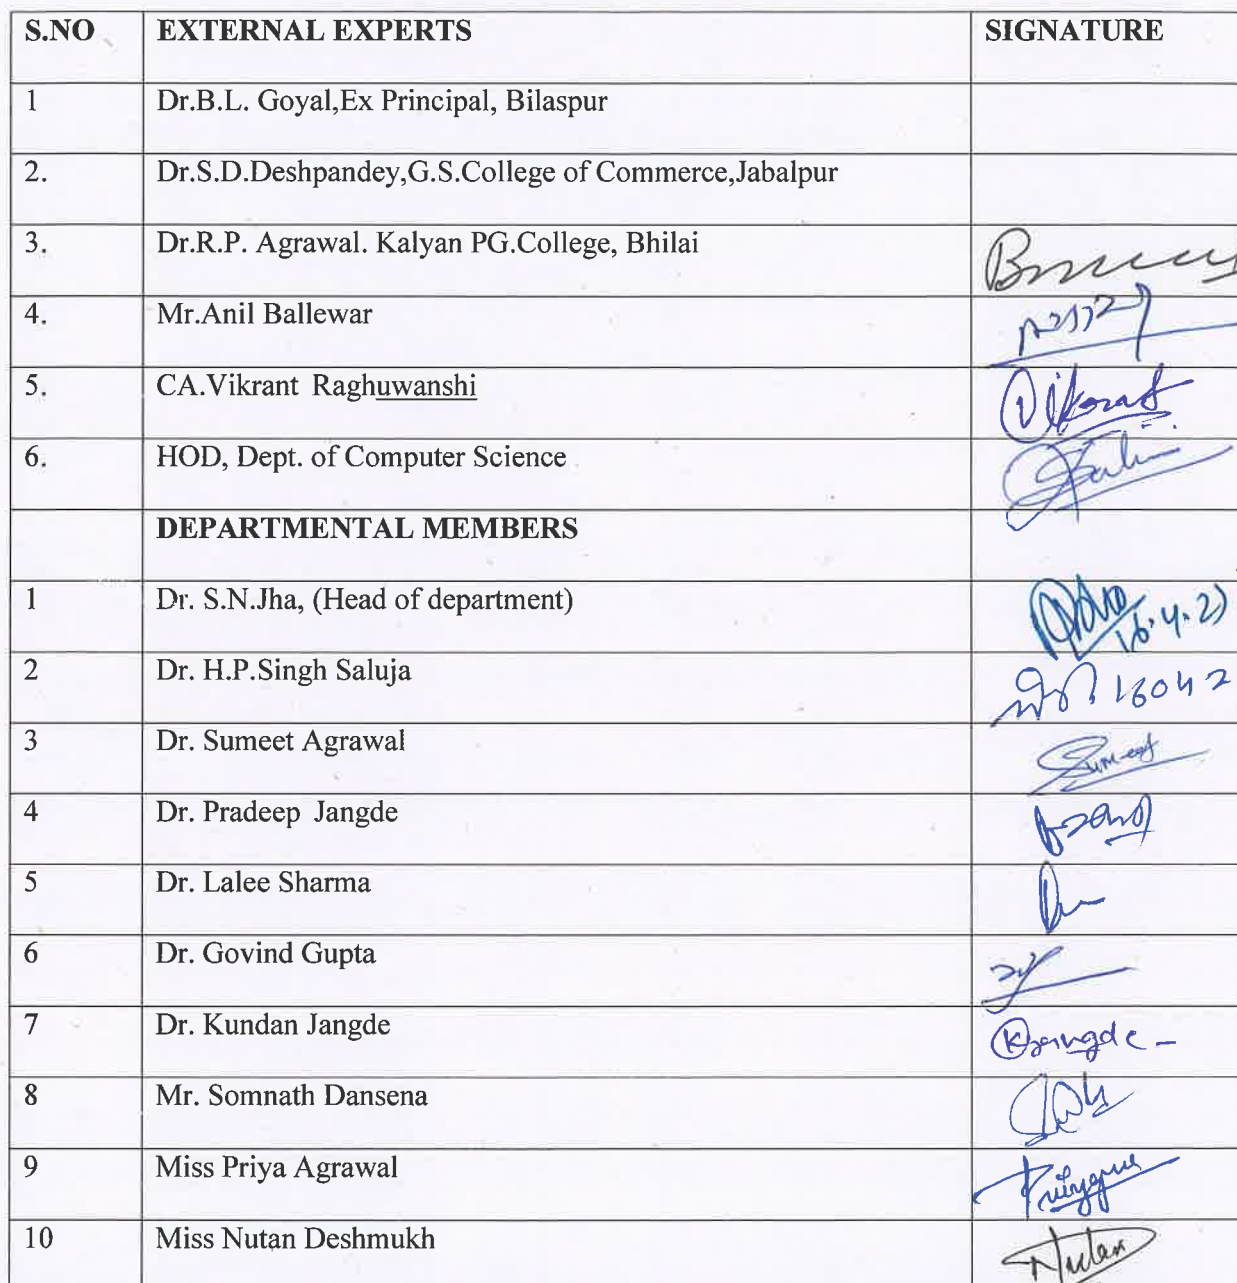 S.NO EXTERNAL EXPERTS SIGNATURE
1 Dr.B.L. Goyal,Ex Principal, Bilaspur
2. Dr.S.D.Deshpandey,G.S.College of Commerce,Jabalpur
3. Dr.R.P. Agrawal. Kalyan PG.College, Bhilai
4. Mr.Anil Ballewar
5. CA.Vikrant Raghuwanshi Vikrant
6. HOD, Dept. of Computer Science
DEPARTMENTAL MEMBERS
1 Dr. S.N.Jha, (Head of department)
2 Dr. H.P.Singh Saluja
3 Dr. Sumeet Agrawal Sumeet
4 Dr. Pradeep Jangde
5 Dr. Lalee Sharma
6 Dr. Govind Gupta
7 Dr. Kundan Jangde KJangde
8 Mr. Somnath Dansena
9 Miss Priya Agrawal
10 Miss Nutan Deshmukh Nutan